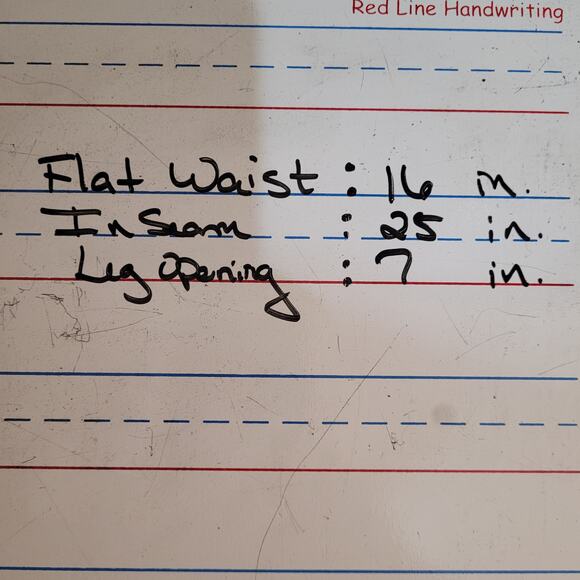 Red Line Handwriting
Flat Waist : 16 in.
InSeam : 25 in.
Leg Opening : 7 in.